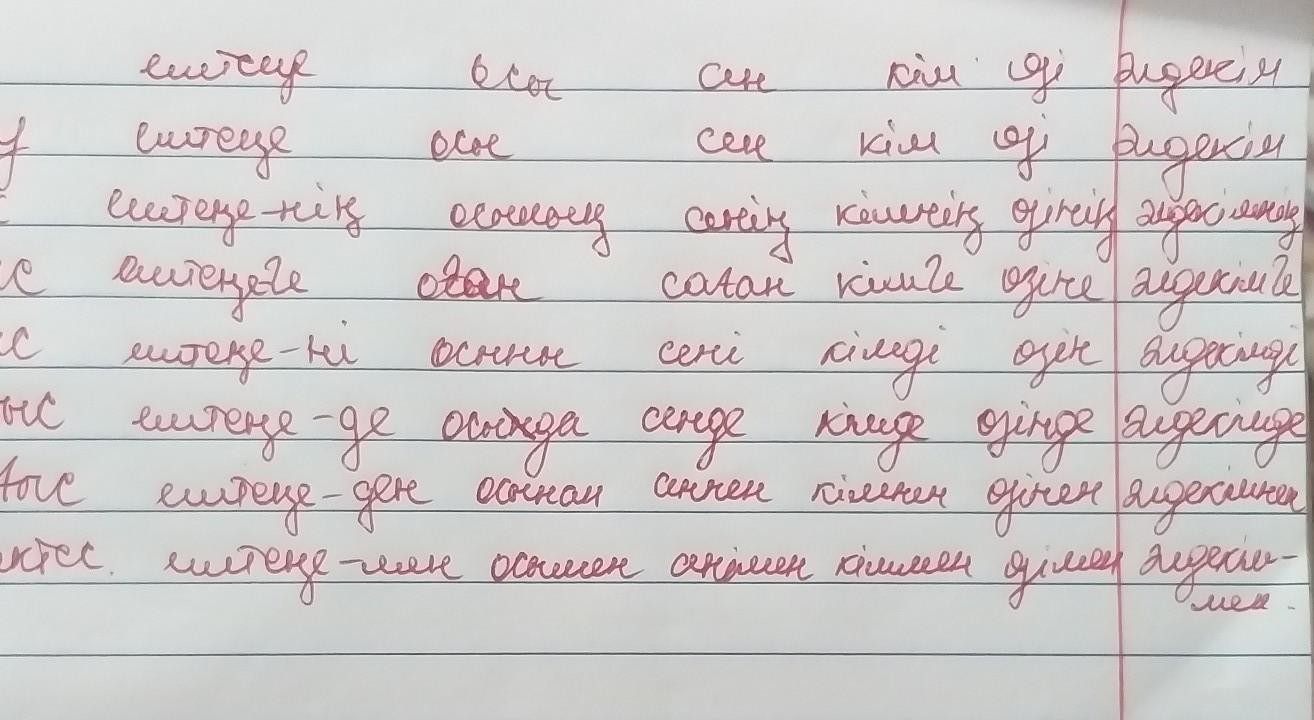 ештеңе осы сен кім өзі әлдекім
у ештеңе осы сен кім өзі әлдекім
ештеңе-нің осының сенің кімнің өзінің әлдекімнің
с ештеңеге оған саған кімге өзіне әлдекімге
с ештеңе-ні осыны сені кімді өзін әлдекімді
ыс ештеңе-де осында сенде кімде өзінде әлдекімде
ғыс ештеңе-ден осынан сеннен кімнен өзінен әлдекімнен
ктес. ештеңе-мен осымен сенімен кіммен өзімен әлдекім-
мен.